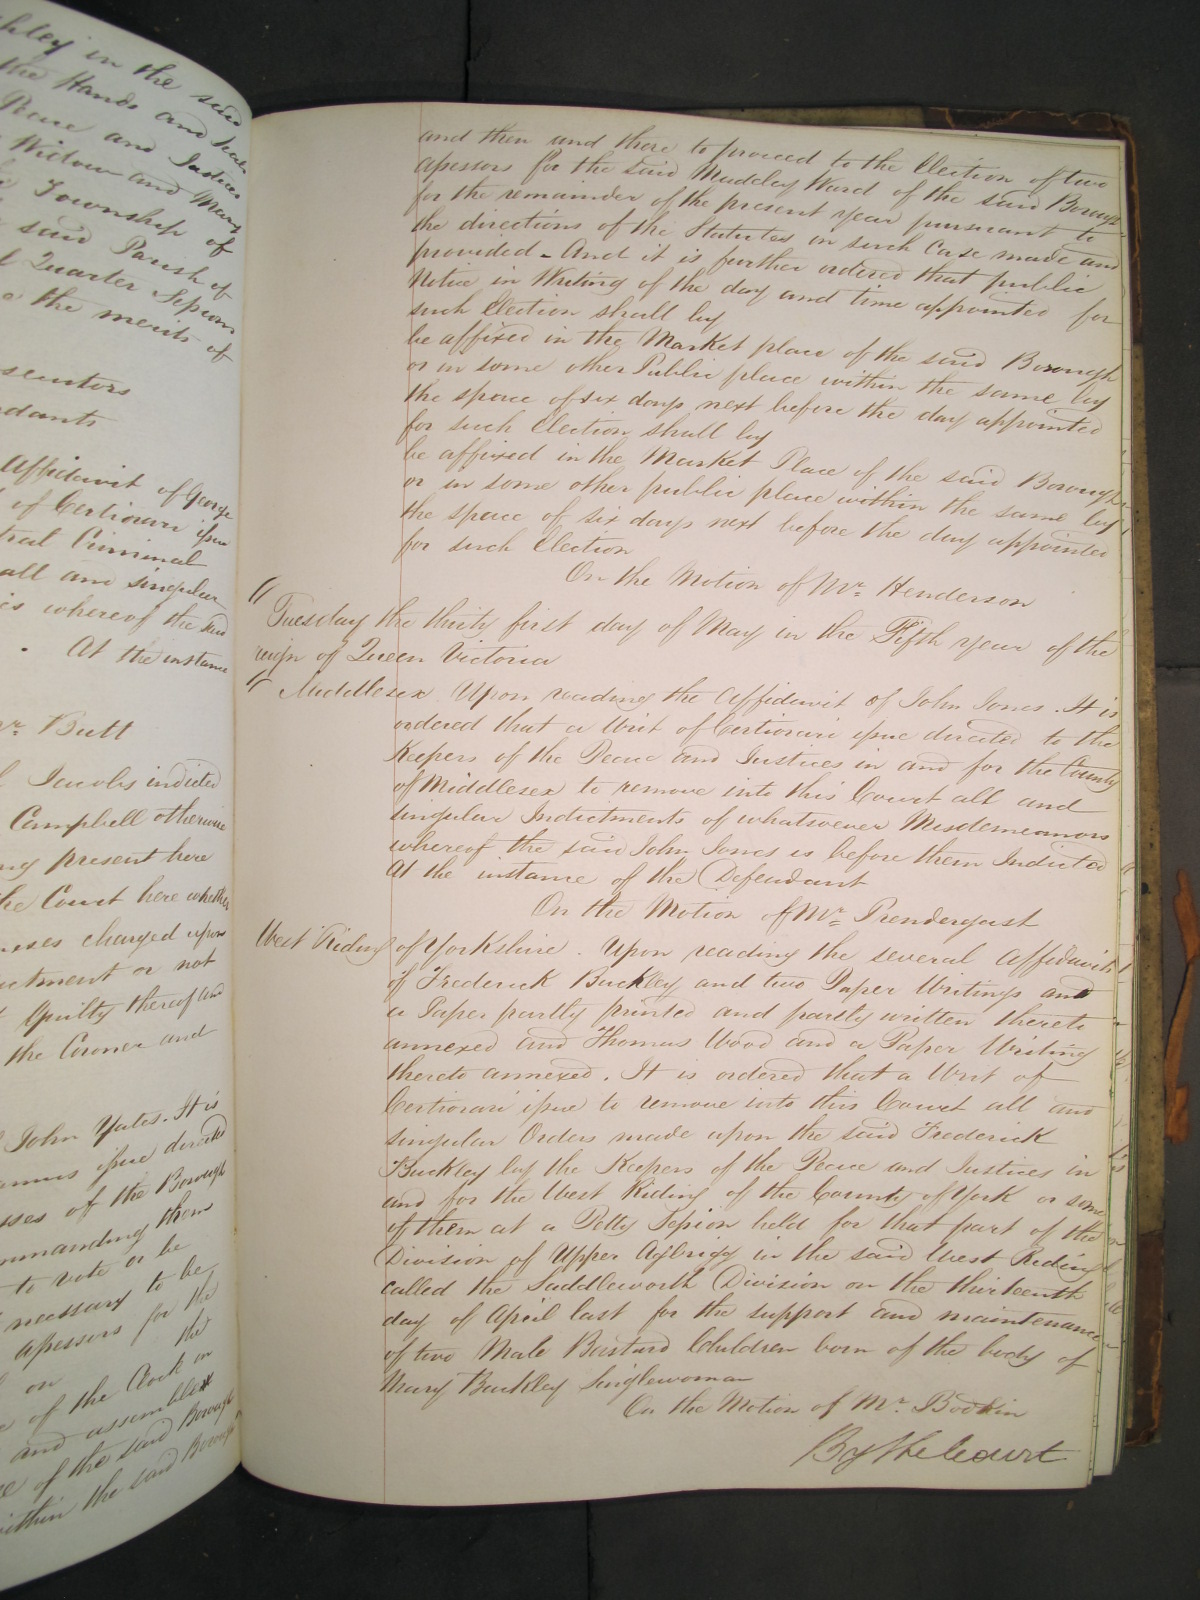 hley in the said
the Hands and Seals
Peace and Justices
Widow and Mary
Township of
said Parish of
Quarter Session
the merits of
secutors
ndants
Affidavit of George
of Certiorari issue
tral Criminal
all and singular
is whereof the said
At the instance
Mr. Butt
Jacobs indicted
Campbell otherwise
ng present here
he Court here whether
charged upon
ctment or not
Guilty thereof and
the Coroner and
John Yates. It is
amus issue directed
sses of the Borough
mmanding them
to vote or be
necessary to be
assessors for the
on the
of the Clock in
and assemble
e of the said Borough
within the said Borough
and then and there to proceed to the Election of two
assessors for the said Madeley Ward of the said Borough
for the remainder of the present year pursuant to
the directions of the Statutes in such Case made and
provided - And it is further ordered that public
Notice in Writing of the day and time appointed for
such Election shall by
be affixed in the Market place of the said Borough
or in some other Public place within the same by
the space of six days next before the day appointed
for such Election shall by
be affixed in the Market Place of the said Borough
or in some other public place within the same by
the space of six days next before the day appointed
for such Election
On the Motion of Mr. Henderson
"Tuesday the thirty first day of May in the Fifth year of the
reign of Queen Victoria
" Middlesex Upon reading the Affidavit of John Jones. It is
ordered that a Writ of Certiorari issue directed to the
Keepers of the Peace and Justices in and for the County
of Middlesex to remove into this Court all and
singular Indictments of whatsoever Misdemeanors
whereof the said John Jones is before them Indicted
At the instance of the Defendant
On the Motion of Mr. Prendergast
West Riding of Yorkshire. Upon reading the several Affidavits
of Frederick Buckley and two Paper Writings and
a Paper partly printed and partly written thereto
annexed and Thomas Wood and a Paper Writing
thereto annexed. It is ordered that a Writ of
Certiorari issue to remove into this Court all and
singular Orders made upon the said Frederick
Buckley by the Keepers of the Peace and Justices in
and for the West Riding of the County of York or some
of them at a Petty Session held for that part of the
Division of Upper Agbrigg in the said West Riding
called the Saddleworth Division on the thirteenth
day of April last for the support and maintenance
of two Male Bastard Children born of the body of
Mary Buckley Singlewoman
On the Motion of Mr. Bodkin
By the Court